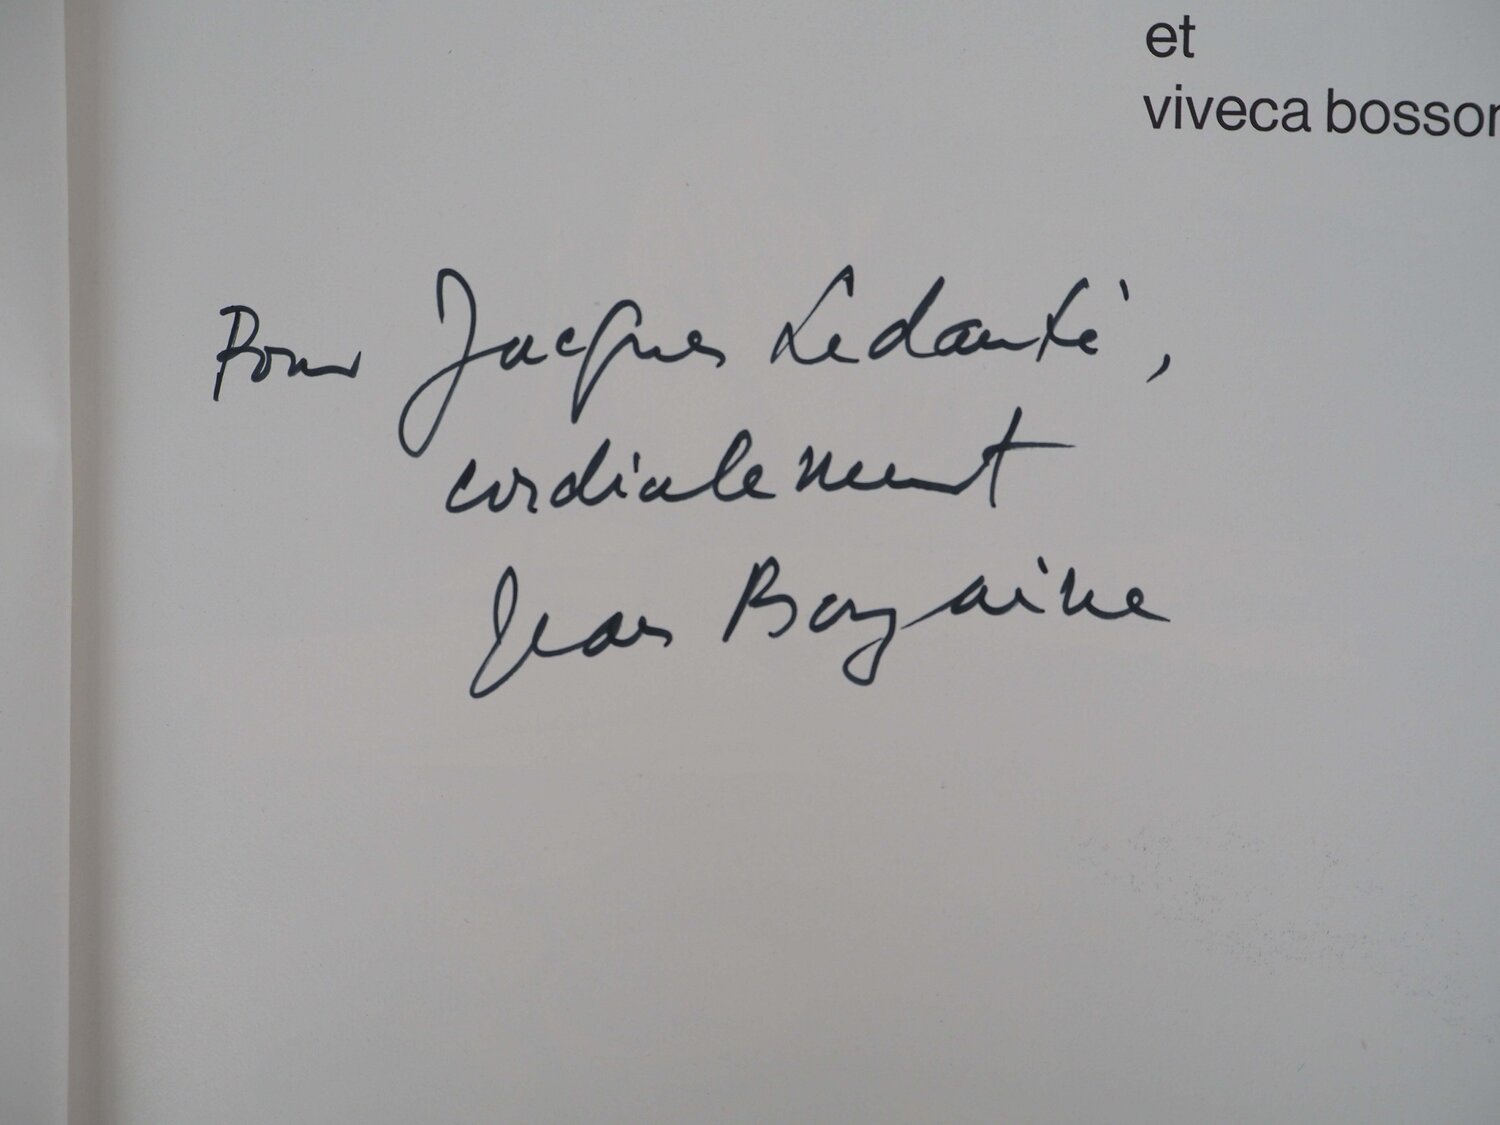 et
viveca bosson
Pour Jacques Ledanté,
cordialement
Jean Bazaine